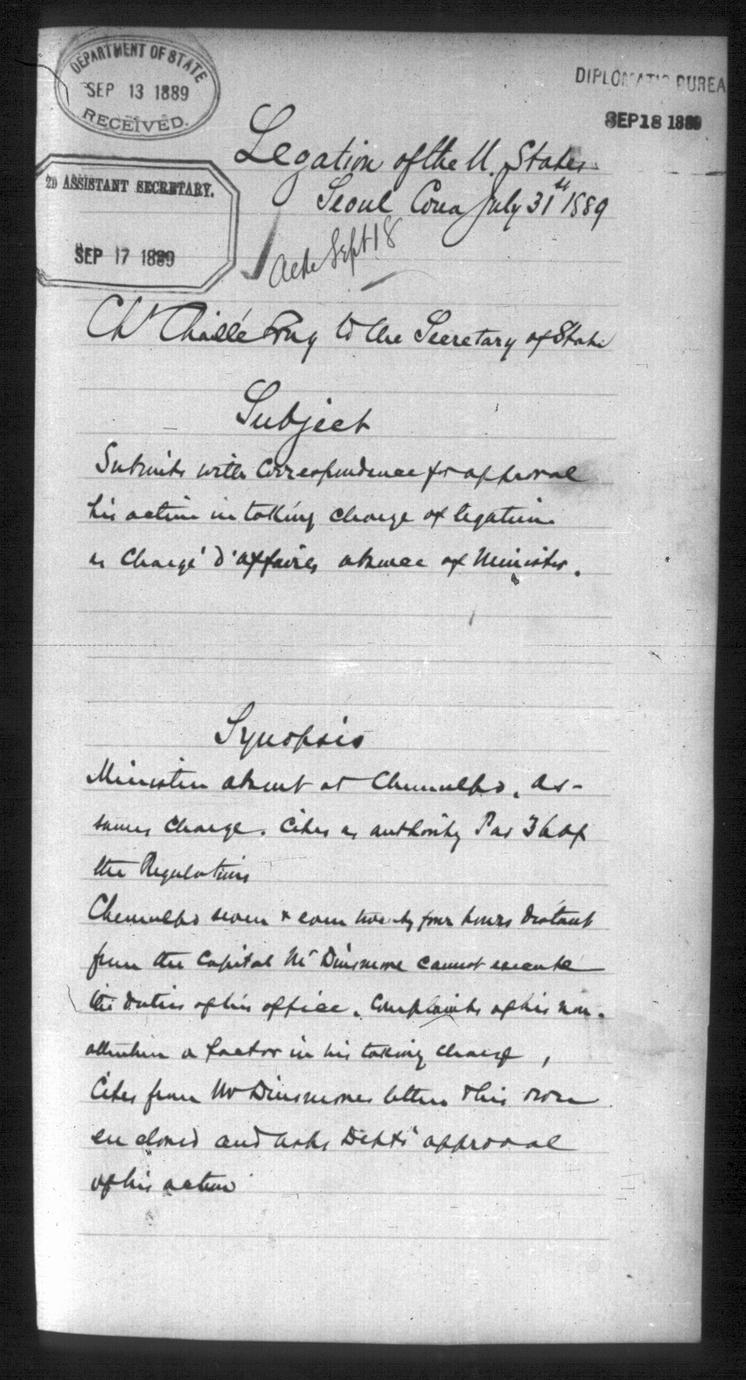 DEPARTMENT OF STATE
SEP 13 1889
RECEIVED.
DIPLOMATIC BUREA
SEP 18 1889
2D ASSISTANT SECRETARY.
SEP 17 1889
Legation of the U. States
Seoul Corea July 31st 1889
Ack Sept 18
Ch. Chaillé Long to the Secretary of State
Subject
Submits with Correspondence for approval
his action in taking charge of legation
as Chargé d'affaires absence of Minister.
Synopsis
Minister absent at Chemulpo, As-
sumes charge. Cites as authority Par 36 of
the Regulations
Chemulpo seven & even twenty four hours distant
from the Capital Mr Dinsmore cannot execute
the duties of his office. Complaints of his non-
attention a factor in his taking charge,
Cites from Mr Dinsmores letter & his own
enclosed and asks Depts' approval
of his action